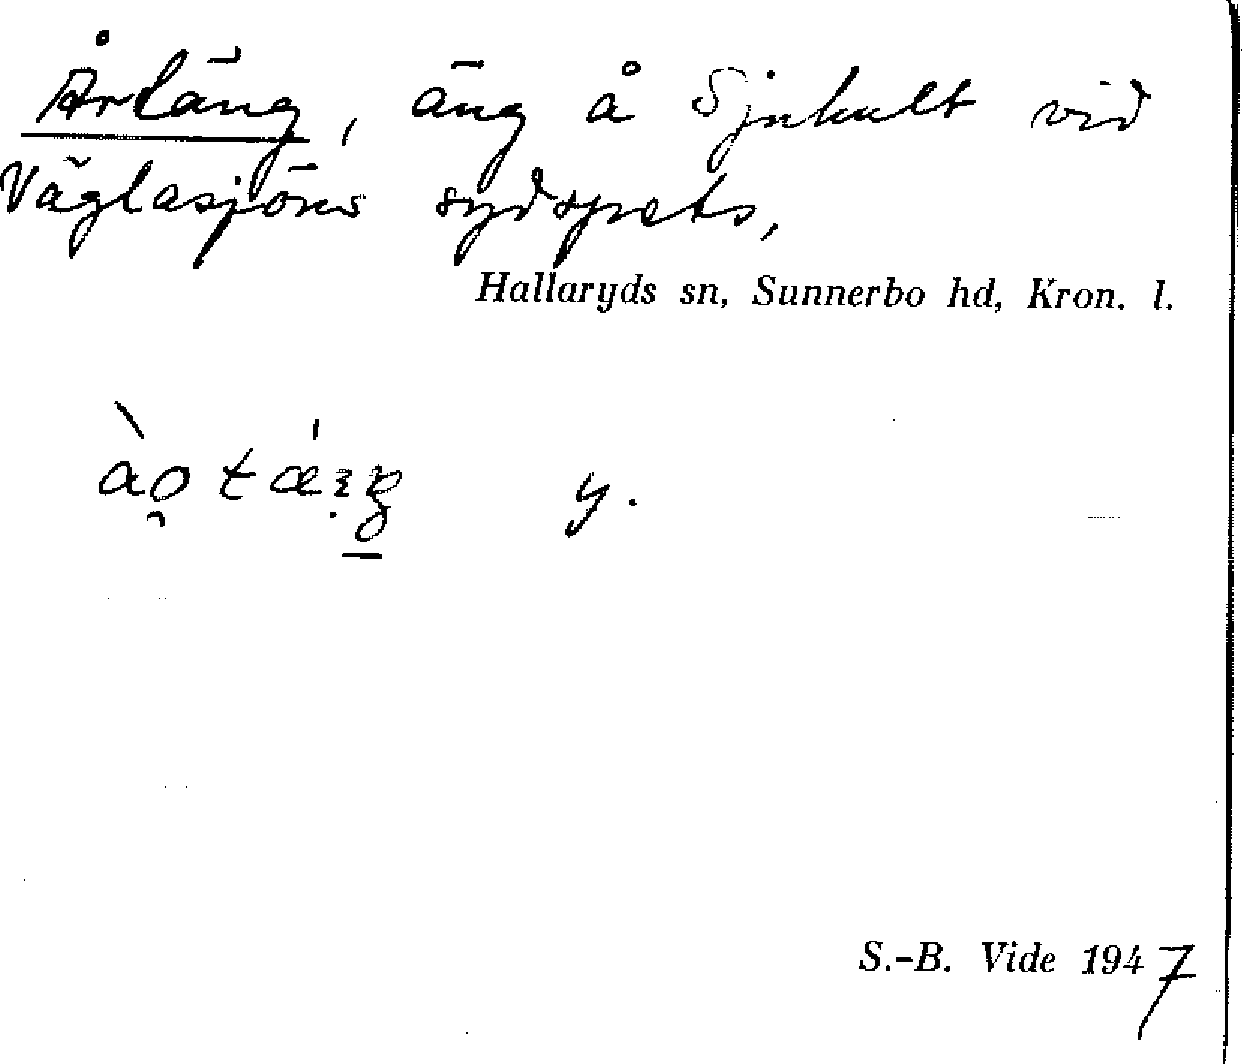 Årtäng, äng å Sjuhult vid
Väglasjöns sydspets,
Hallaryds sn, Sunnerbo hd, Kron. l.
y.
S.-B. Vide 1947